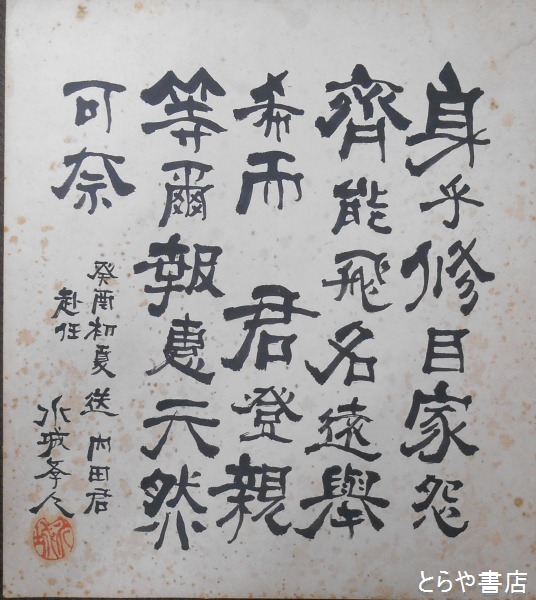 身乎修目家怨
齊能飛名遠舉
希而 君登親
等爾報恵天然
可奈
癸酉初夏 送 内田君
赴任
水城
とらや書店